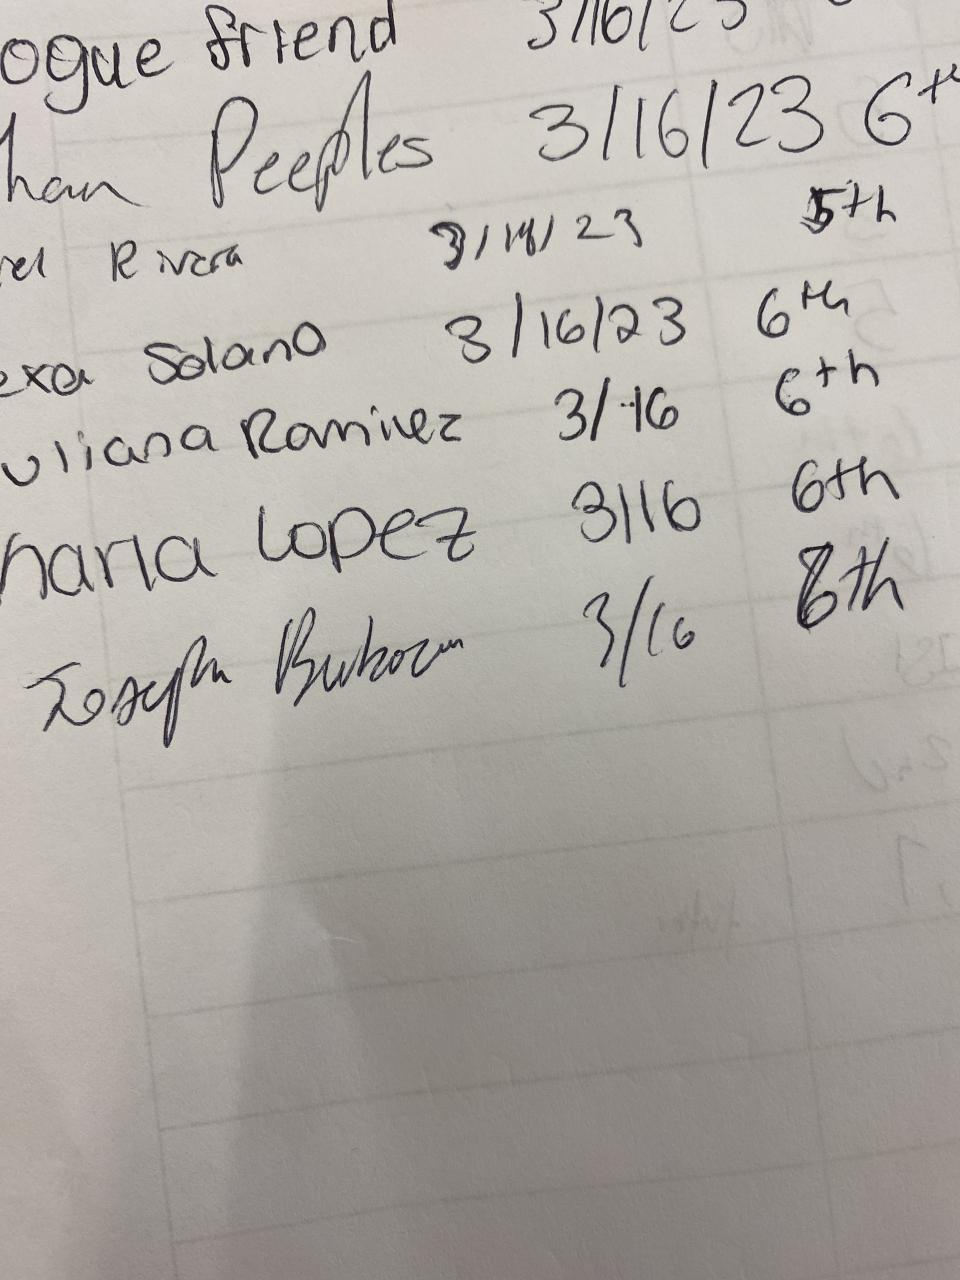 ogue friend 3/16/23
han Peeples 3/16/23 6th
rel Rivera 23 5th
exa Solano 3/16/23 6th
uliana Ramirez 3/16 6th
haria Lopez 3/16 6th
Joseph 3/16 8th